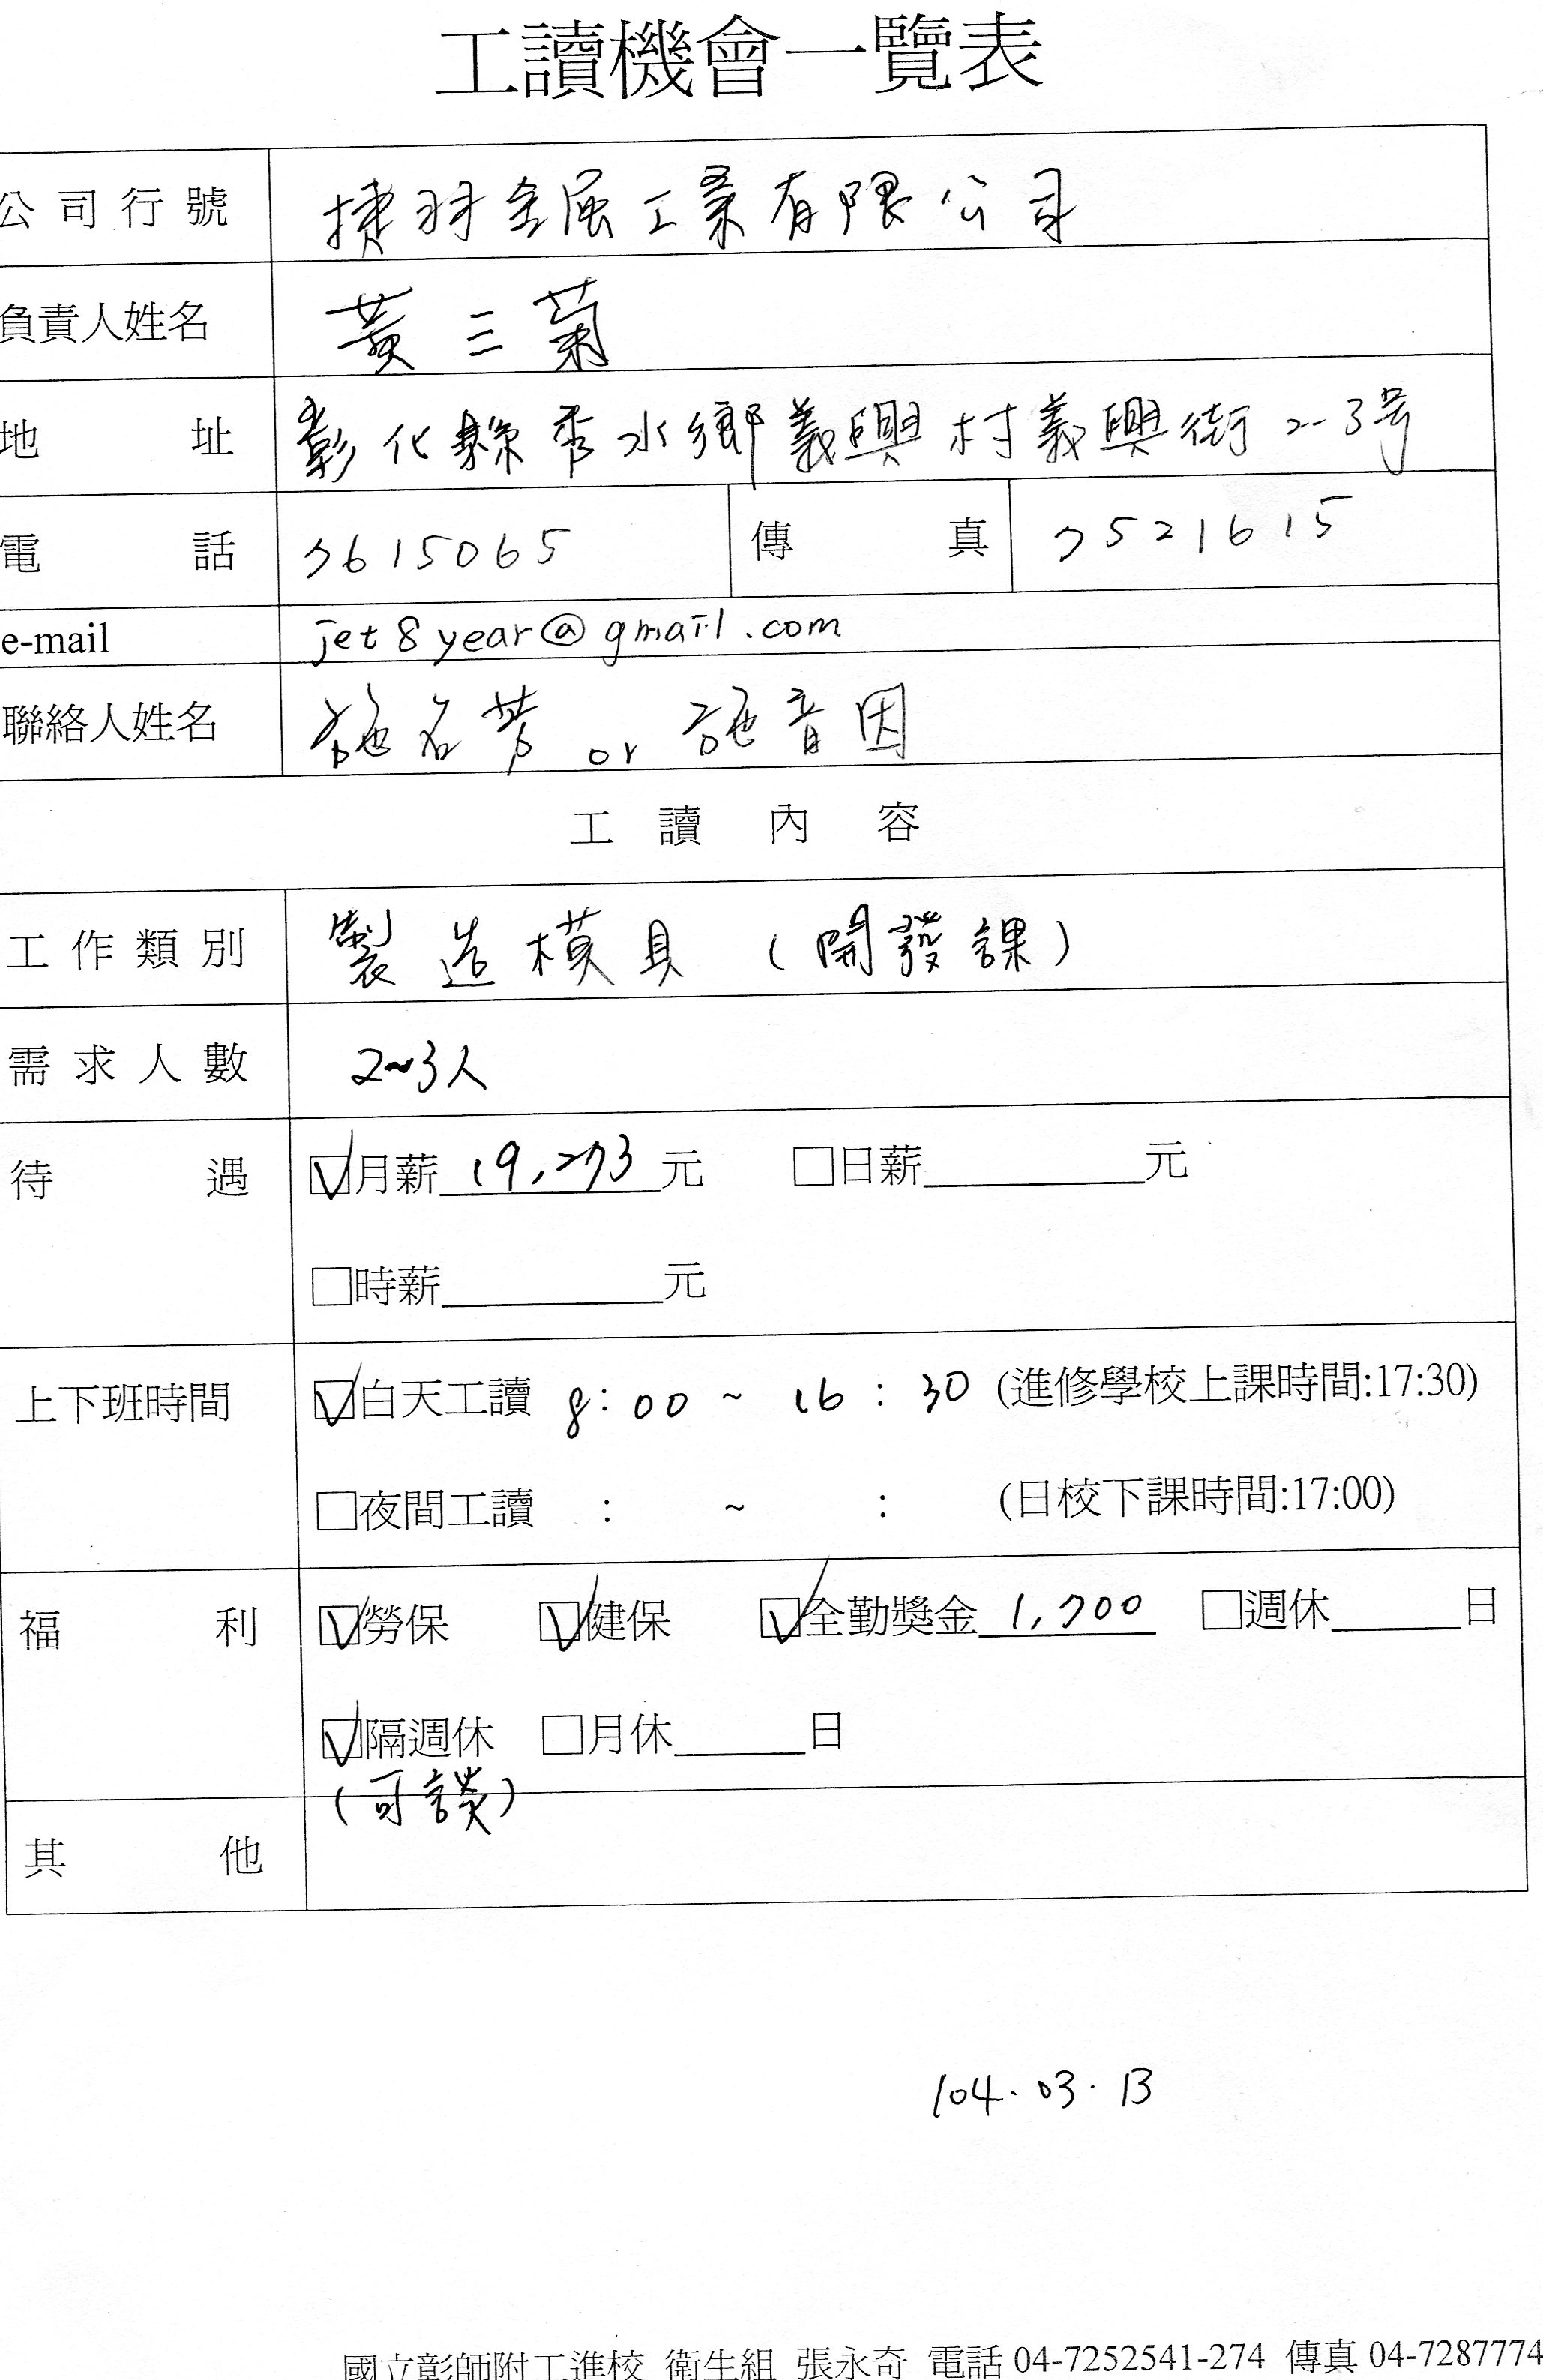 工讀機會一覽表
公司行號 捷羽金属工業有限公司
負責人姓名 黃三菊
地址 彰化縣秀水鄉義興村義興街2-3号
電話 7615065 傳真 7521615
e-mail jet8year@gmail.com
聯絡人姓名 施名芳 or 施音因
工讀內容
工作類別 製造模具(開發課)
需求人數 2~3人
待遇 ☑月薪 19,273 元 □日薪______元
□時薪______元
上下班時間 ☑白天工讀 8:00 ~ 16:30 (進修學校上課時間:17:30)
□夜間工讀 : ~ : (日校下課時間:17:00)
福利 ☑勞保 ☑健保 ☑全勤獎金 1,700 □週休____日
☑隔週休 □月休____日
(可談)
其他
104.03.13
國立彰師附工進校 衛生組 張永奇 電話 04-7252541-274 傳真 04-7287774